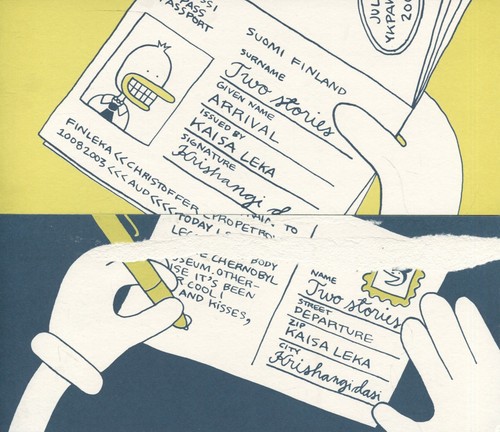 PASS
PASSPORT
SUOMI FINLAND
SURNAME
Two stories
GIVEN NAME
ARRIVAL
ISSUED BY
KAISA LEKA
SIGNATURE
Krishangi da
FINLEKA<<CHRISTOFFER
10082003<<<AUD<<<<
TO
TODAY
BODY
CHERNOBYL
SEUM. OTHER-
ISE IT'S BEEN
COOL!
AND KISSES,
NAME
Two stories
STREET
DEPARTURE
ZIP
KAISA LEKA
CITY
Krishangi dasi